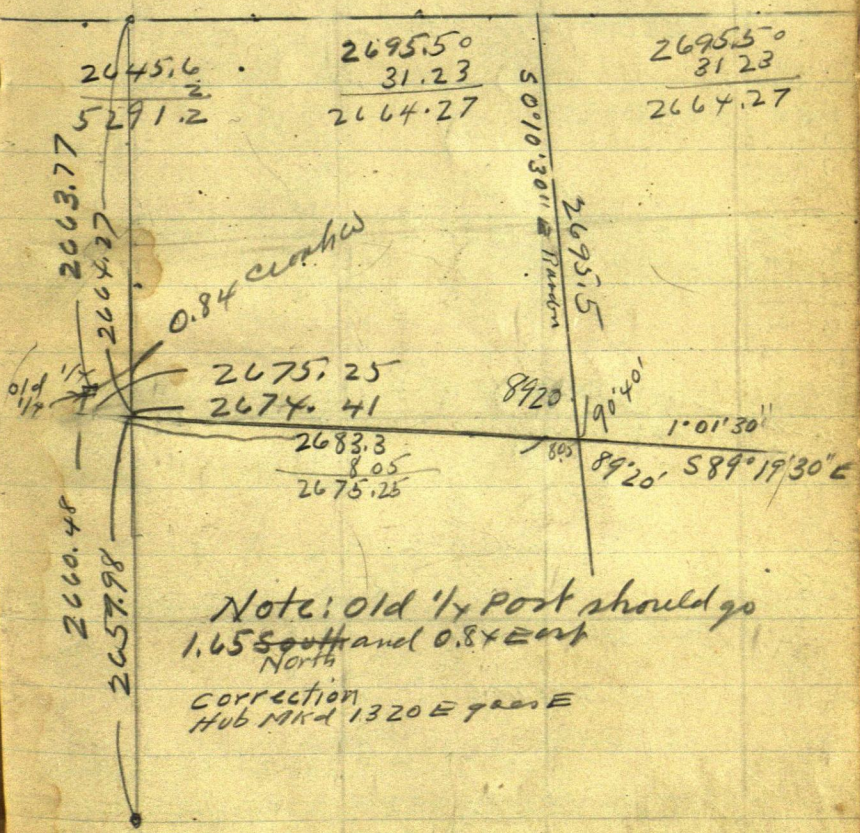 2645.6
2
5291.2
2695.50
31.23
2664.27
2695.50
31 23
2664.27
2663.77
2664.27
S 0°10'30" E Random
2695.5
0.84
old 1/4
1/4
2675.25
2674.41
2683.3
8 05
2675.25
8920
90°40'
805
89°20'
1°01'30"
S 89°19'30" E
2660.48
2659.98
Note: Old 1/4 Post should go
1.65 South and 0.84 East
North
correction
Hub Mkd 1320 E goes E